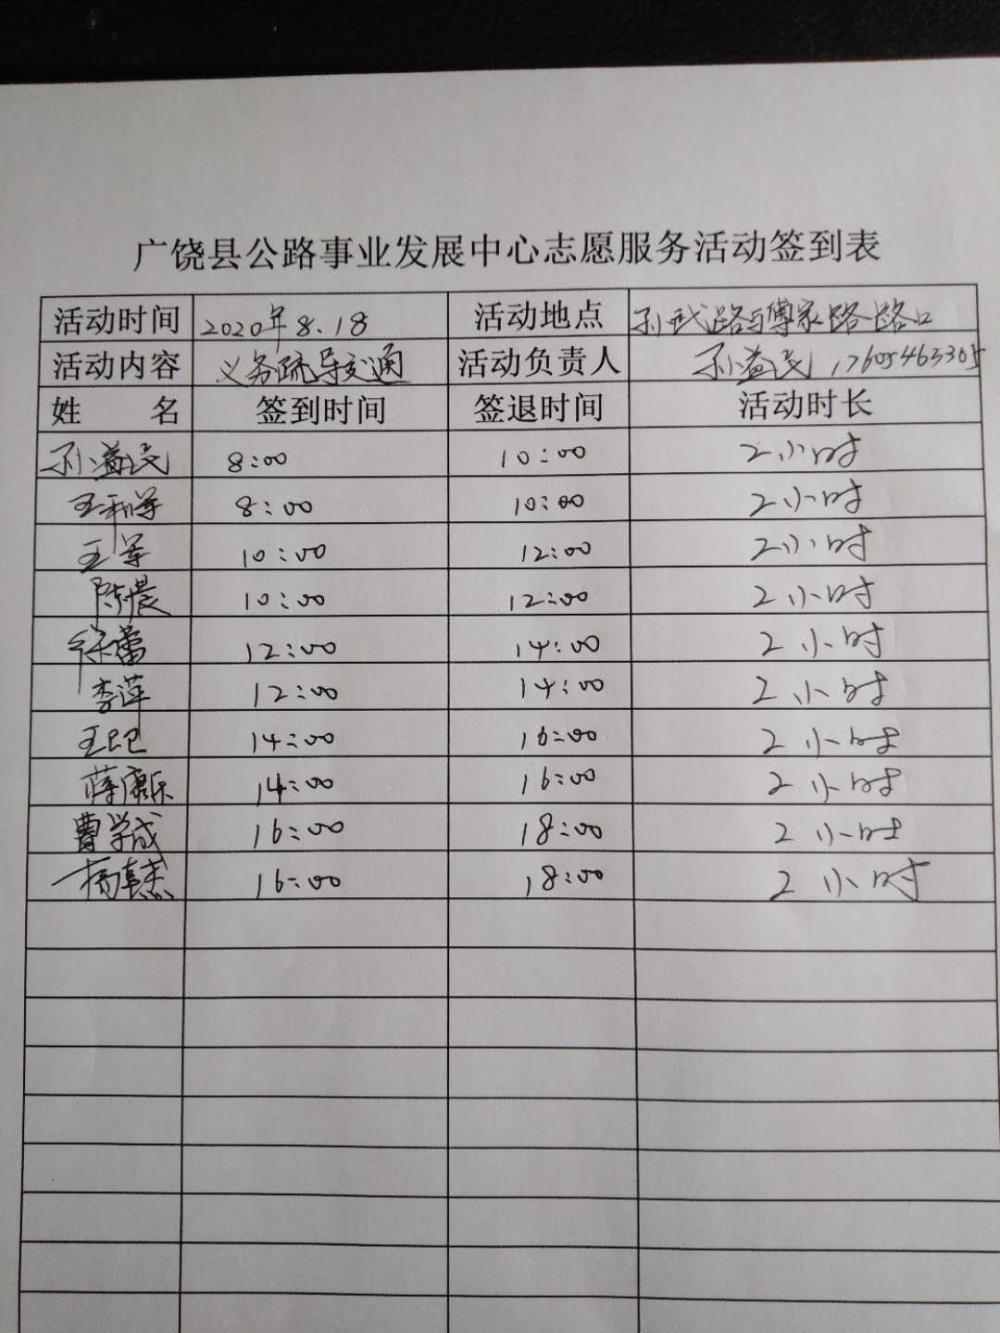 广饶县公路事业发展中心志愿服务活动签到表
活动时间 2020年8.18 活动地点 孙武路与傅家路路口
活动内容 义务疏导交通 活动负责人 孙益民 17605463305
姓 名 签到时间 签退时间 活动时长
孙益民 8:00 10:00 2小时
王利军 8:00 10:00 2小时
王军 10:00 12:00 2小时
陈晨 10:00 12:00 2小时
徐蕾 12:00 14:00 2小时
李萍 12:00 14:00 2小时
王 14:00 16:00 2小时
蒋康乐 14:00 16:00 2小时
曹学成 16:00 18:00 2小时
杨 16:00 18:00 2小时